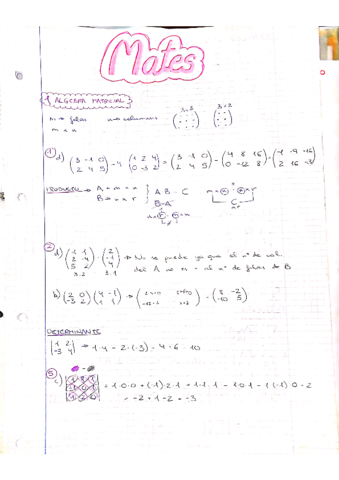 Mates
1 ALGEBRA MATRICIAL
m → filas n → columnas
m × n
3×3 3×2
1 d) (3 -1 0 / 2 4 5) - 4 (1 2 4 / 0 -3 2) = (3 -1 0 / 2 4 5) - (4 8 16 / 0 -12 8) = (-1 -9 -16 / 2 16 -3)
PRODUCTO → A = m × n } A·B = C
B = n × r } B·A
2 d) (1 1 / 2 4 / 5 2) · (2 / -1 / 4) → No se puede ya que el nº de col.
3·2 3·1 del A no es = al nº de filas de B
b) (2 0 / -3 2) (4 -1 / 1 1) → = (8 -2 / -10 5)
DETERMINANTE
|1 2 / -3 4| → 1·4 - 2·(-3) = 4+6 = 10
5 c) = 1·0·0 + (-1)·2·1 + 1·1·1 - 1·0·1 - 1·(-1)·0 - 2
= -2 + 1 - 2 = -3